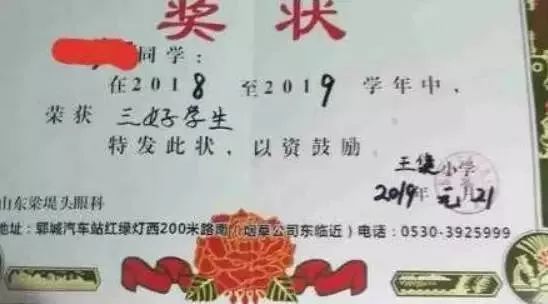 奖状
同学:
在2018至2019学年中,
荣获 三好学生
特发此状,以资鼓励
小学
2019年元月21
山东梁堤头眼科
地址:郓城汽车站红绿灯西200米路南(烟草公司东临近)电话:0530-3925999